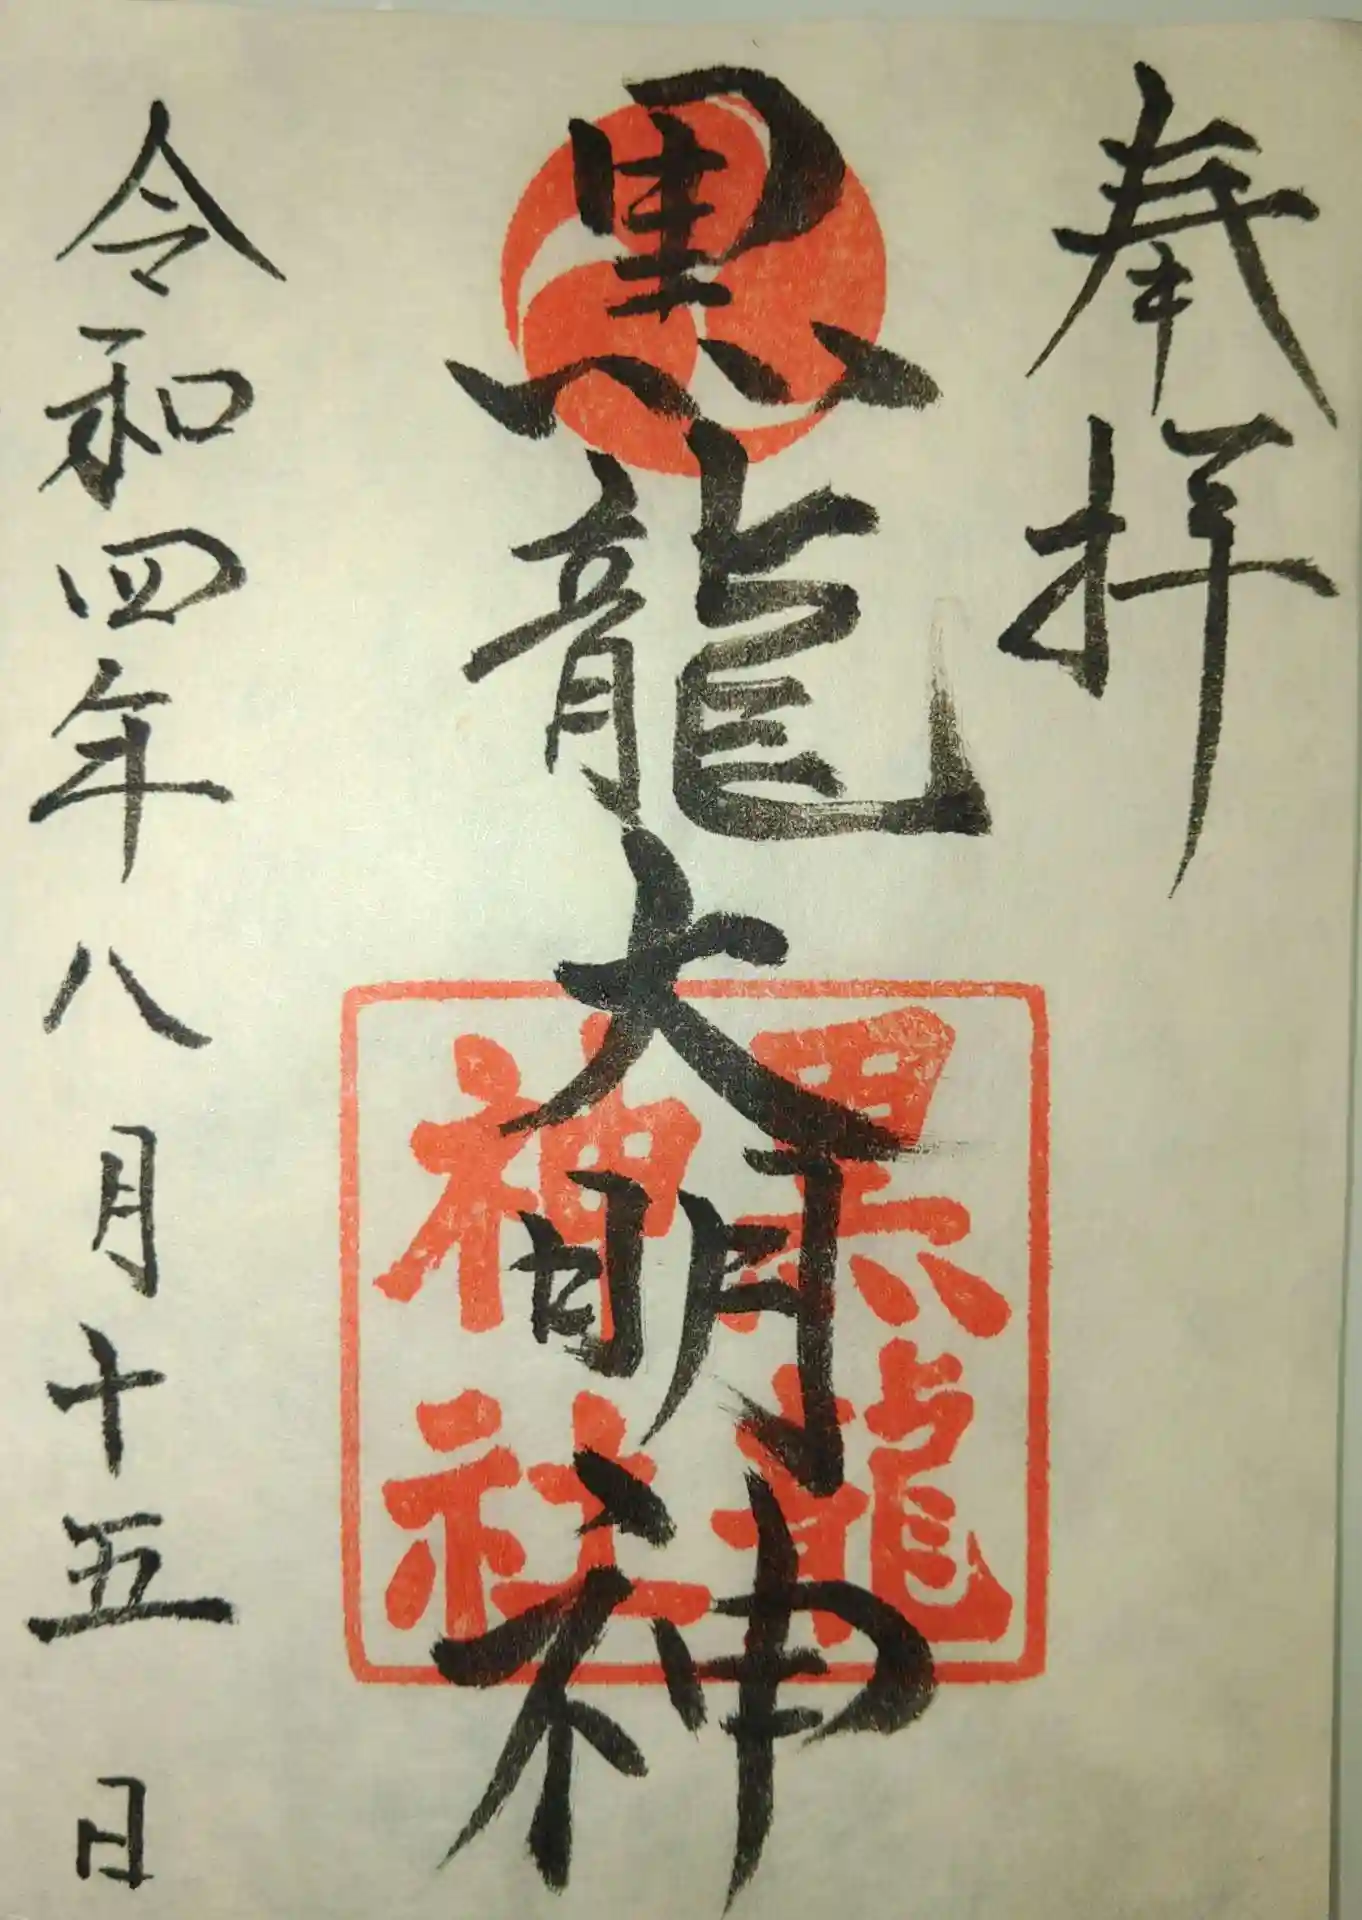 奉拝
黒龍大明神
黒龍
神社
令和四年八月十五日